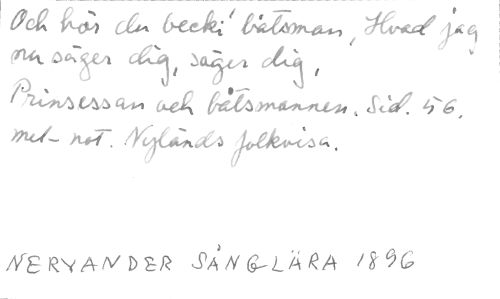 Och hör du beck' båtsman, Hvad jag
nu säger dig, säger dig,
Prinsessan och båtsmannen. Sid. 56.
mel-not. Nylands folkvisa.
NERVANDER SÅNGLÄRA 1896